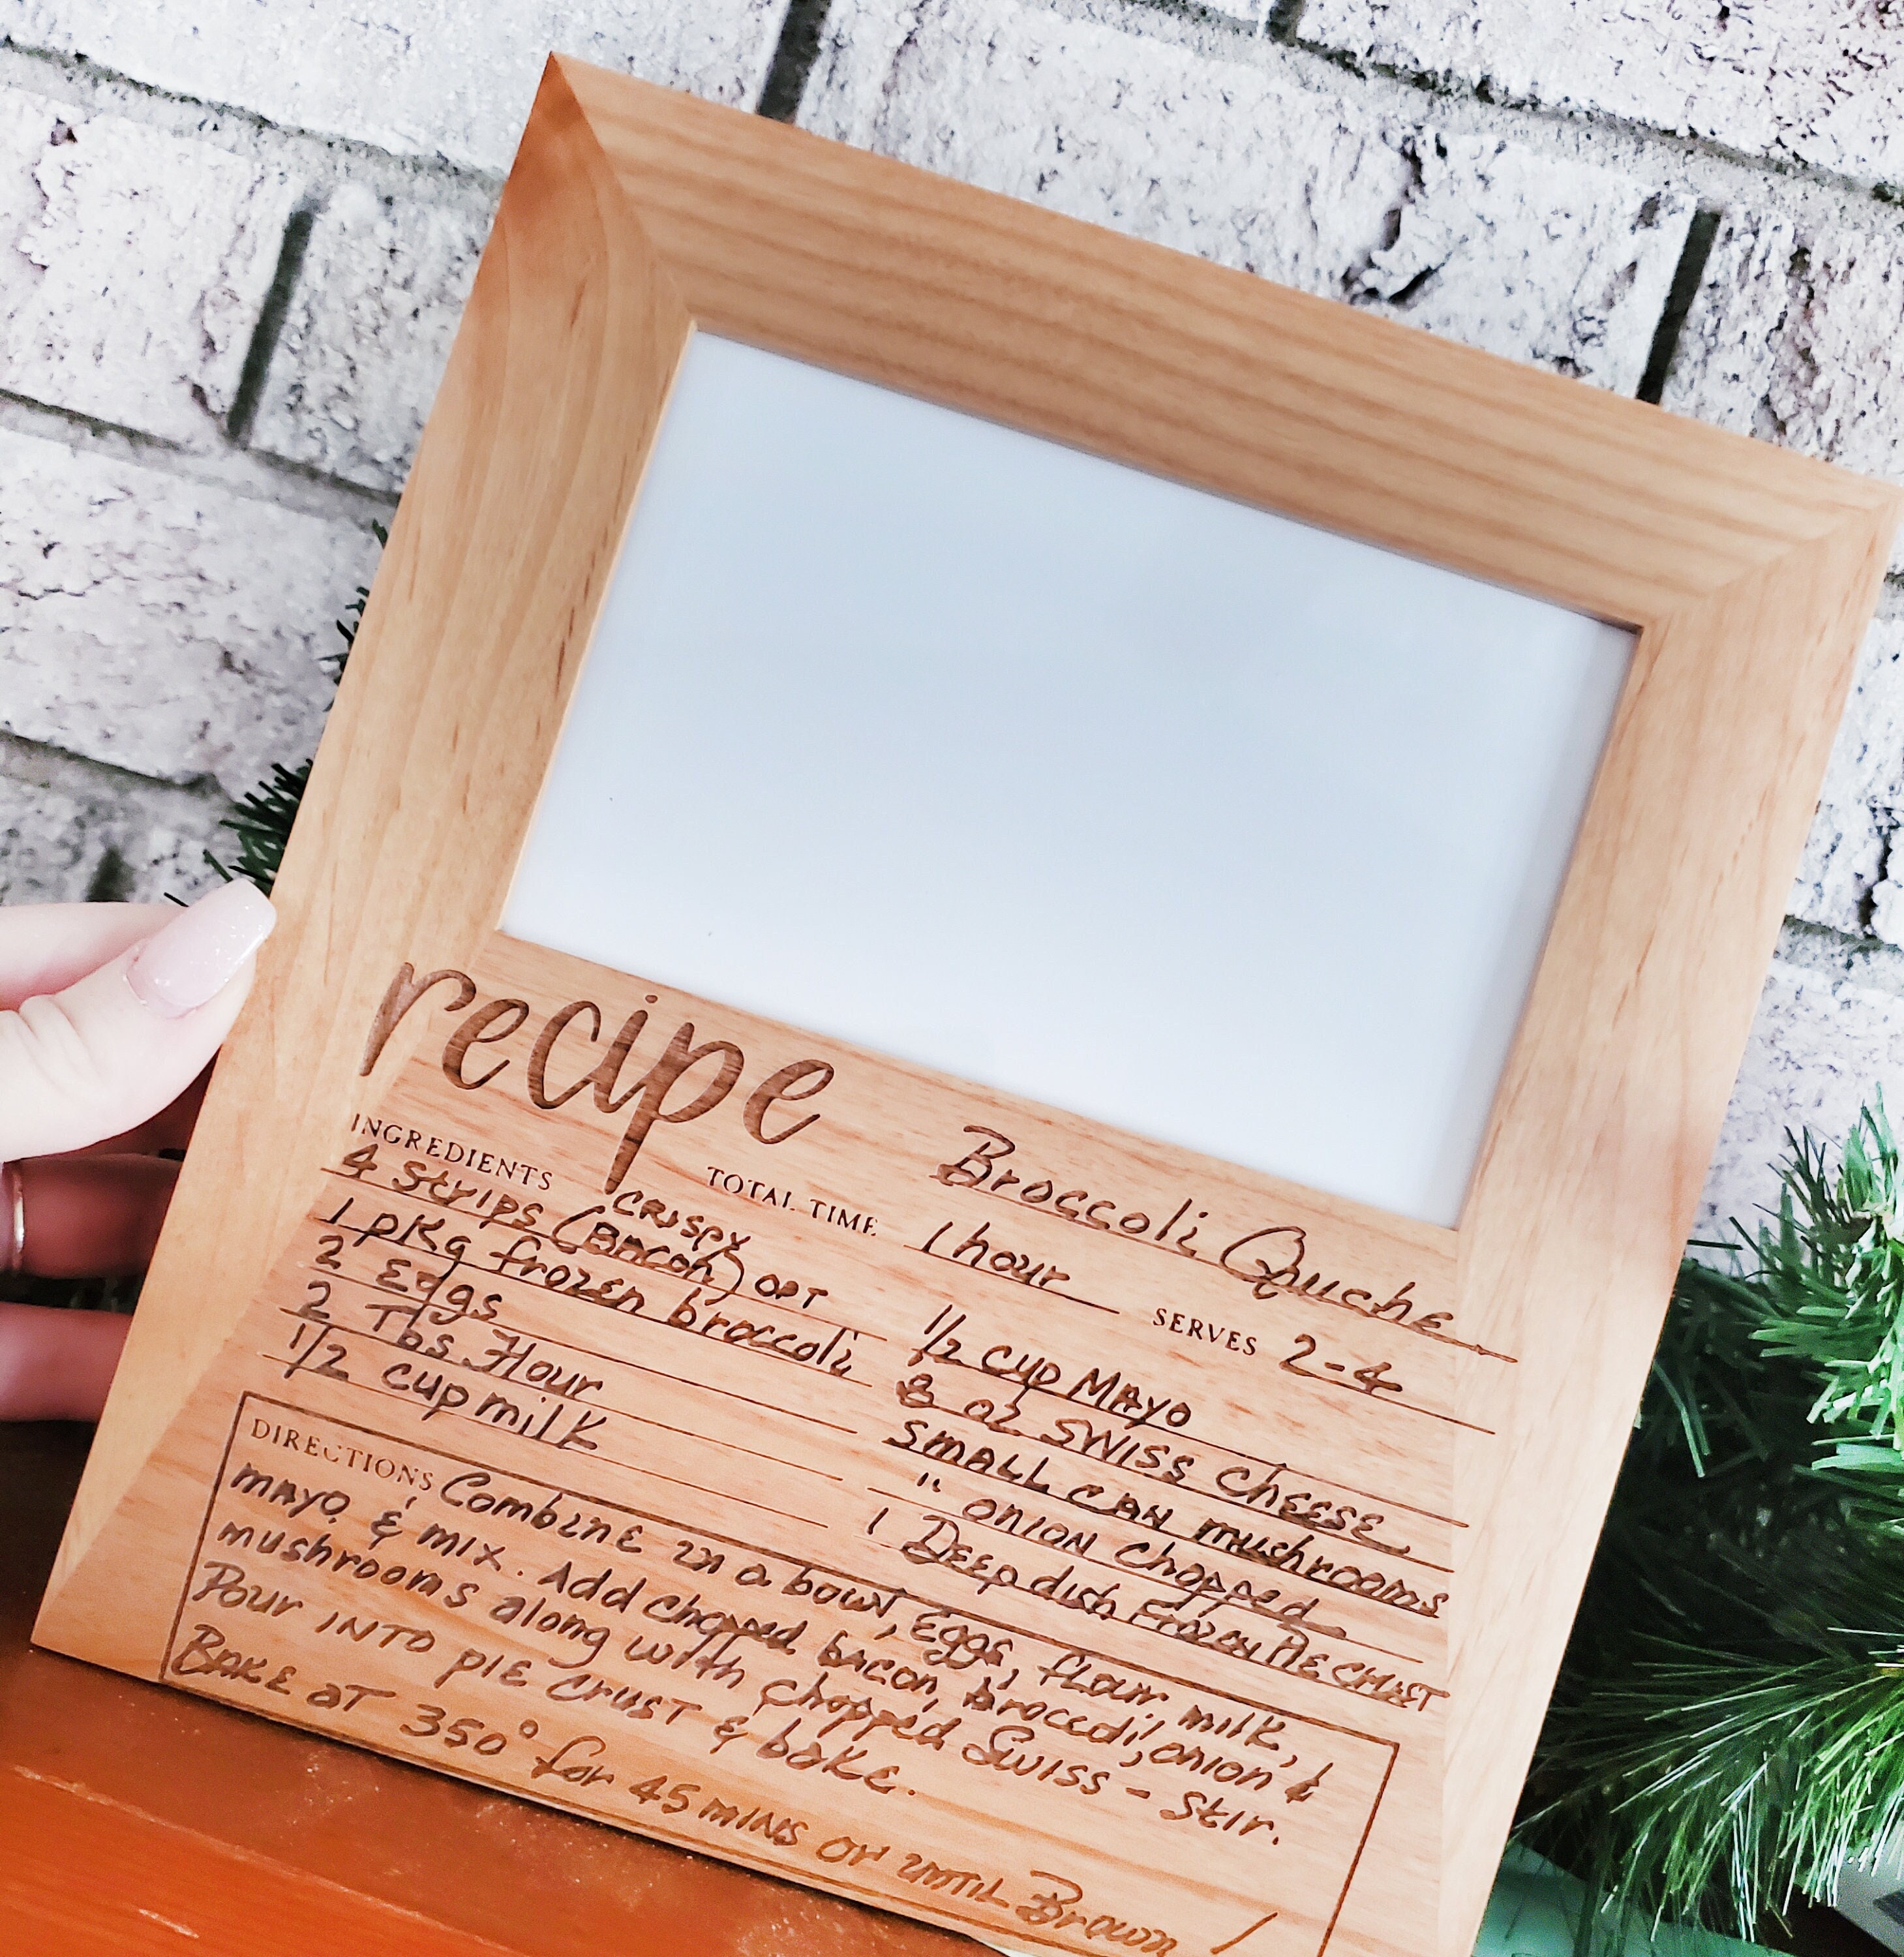 recipe Broccoli Quuche
TOTAL TIME 1 hour SERVES 2-4
INGREDIENTS
4 Strips (Bacon) CRISPY OPT
1 pkg frozen broccoli
2 Eggs
2 Tbs Flour
1/2 cup milk
1/2 cup MAYO
8 oz SWISS CHEESE
SMALL CAN mushrooms
" ONION Chopped
1 DEEP dish Frozen PIE CRUST
DIRECTIONS Combine in a bowl, Eggs, flour, milk,
MAYO & MIX. Add chopped bacon, broccoli, onion &
mushrooms along with chopped Swiss - Stir.
Pour INTO PIE CRUST & bake.
BAKE AT 350° for 45 MINS or until Brown /